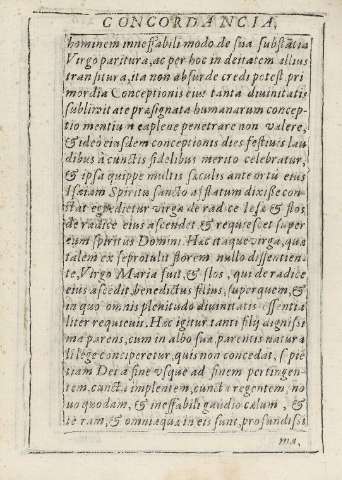 CONCORDANCIA,
hominem inneffabili modo de sua substãtia
Virgo paritura, ac per hoc in deitatem alius
transitura, ita non absurde credi potest pri
mordia Conceptionis eius tanta divinitatis
sublimitate præsignata humanarum concep-
tio mentiu
penetrare non valere,
& ideo eiusdem conceptionis dies festius lau
dibus à cunctis fidelibus merito celebratur,
& ipsa quippe multis sæculis ante ortũ eius
Isaiam Spiritu sancto afflatum dixisse con-
stat egredietur virga de radice Iesse & flos
de radice eius ascendet, & requiescet super
eum spiritus Domini. Hæc itaque virga, quæ
talem ex se protulit florem nullo dissentien-
te, Virgo Maria fuit, & flos, qui de radice
eius ascēdit, benedictus filius, super quem, &
in quo omnis plenitudo divinitatis essentia
liter requievit. Hæc igitur tanti filij dignissi
ma parens, cum in albo suæ parentis natura
li lege conciperetur, quis non concedat, sapiē
tiam Dei à fine usque ad finem pertingen-
tem, cuncta implentem, cuncta regentem, no
uo quodam, & ineffabili gaudio cælum, &
terram, & omnia quæ in eis sunt, profundissi
ma,